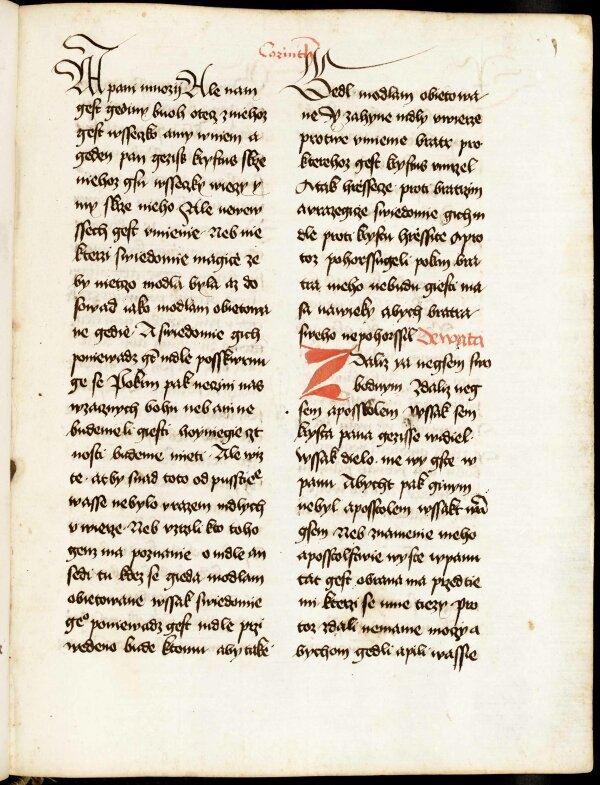 Corinth
A pani mnozij Ale nam
gest gediny buoh otecz z niehoz
gest wsseczko a my w niem a
geden pan gezissz krystus skrze
niehoz gsu wsseczky wieczy y
my skrze nieho Ale ne we w
ssech gest vmienie Neb nie
kterzi swiedomie magice ze
by nietzo modla byla az do
sowad iako modlam obietowa
ne gedie A swiedomie gich
poniewadz ge mdle posskwrnu
ge se Pokrm pak neczini nas
wzacznych bohu neb ani ne
budemeli giesti hoyniegie ct
nosti budeme mieti Ale wiz
te at by snad toto od pusstie
wasse nebylo vrazem mdlych
v wierze Neb vzrzili kto toho
genz ma poznanie o mdle an
sedi tu kdez se gieda modlam
obietowane wssak swiedomie
geo poniewadz gest mdle przi
wedeno bude k tomu aby take
Gedl modlam obietowa
ne Y zahyne mdly v wierze
protwe vmienie bratr pro
kterehoz gest krystus vmrzel
A tak hrzessiece proti bratrzim
a vrazegice swiedomie gich m
dle proti krystu hrzessite A pro
toz pohorssugeli pokrm bra
tra meho nebudu giesti ma
sa nawieky abych bratra
sweho nepohorssil Dewata
Zdaliz ya negsem swo
bodnym Zdaliz neg
sem aposstolem Wssak sem
krysta pana gezisse widiel
Wssak dielo me wy gste w
panu A bycht pak ginym
nebyl aposstolem wssakt wam
gsem Neb znamenie meho
aposstolstwie wy ste w panu
tat gest obrana ma przed tie
mi kterzi se mne tiezy Pro
toz zdali nemame moczy a
bychom gedli a pili wassie